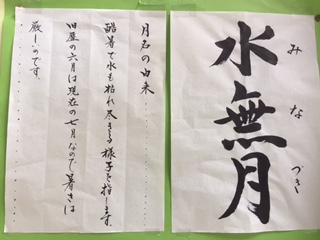 水無月
みなづき
月名の由来
酷暑で水も枯れ尽きる様子を指します。
旧暦の六月は現在の七月なので暑さは
厳しいのです。